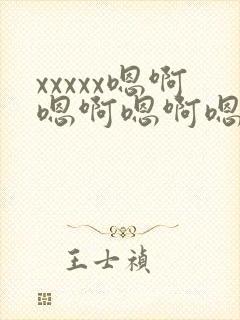 xxxxx嗯啊
嗯啊嗯啊嗯
王士禎